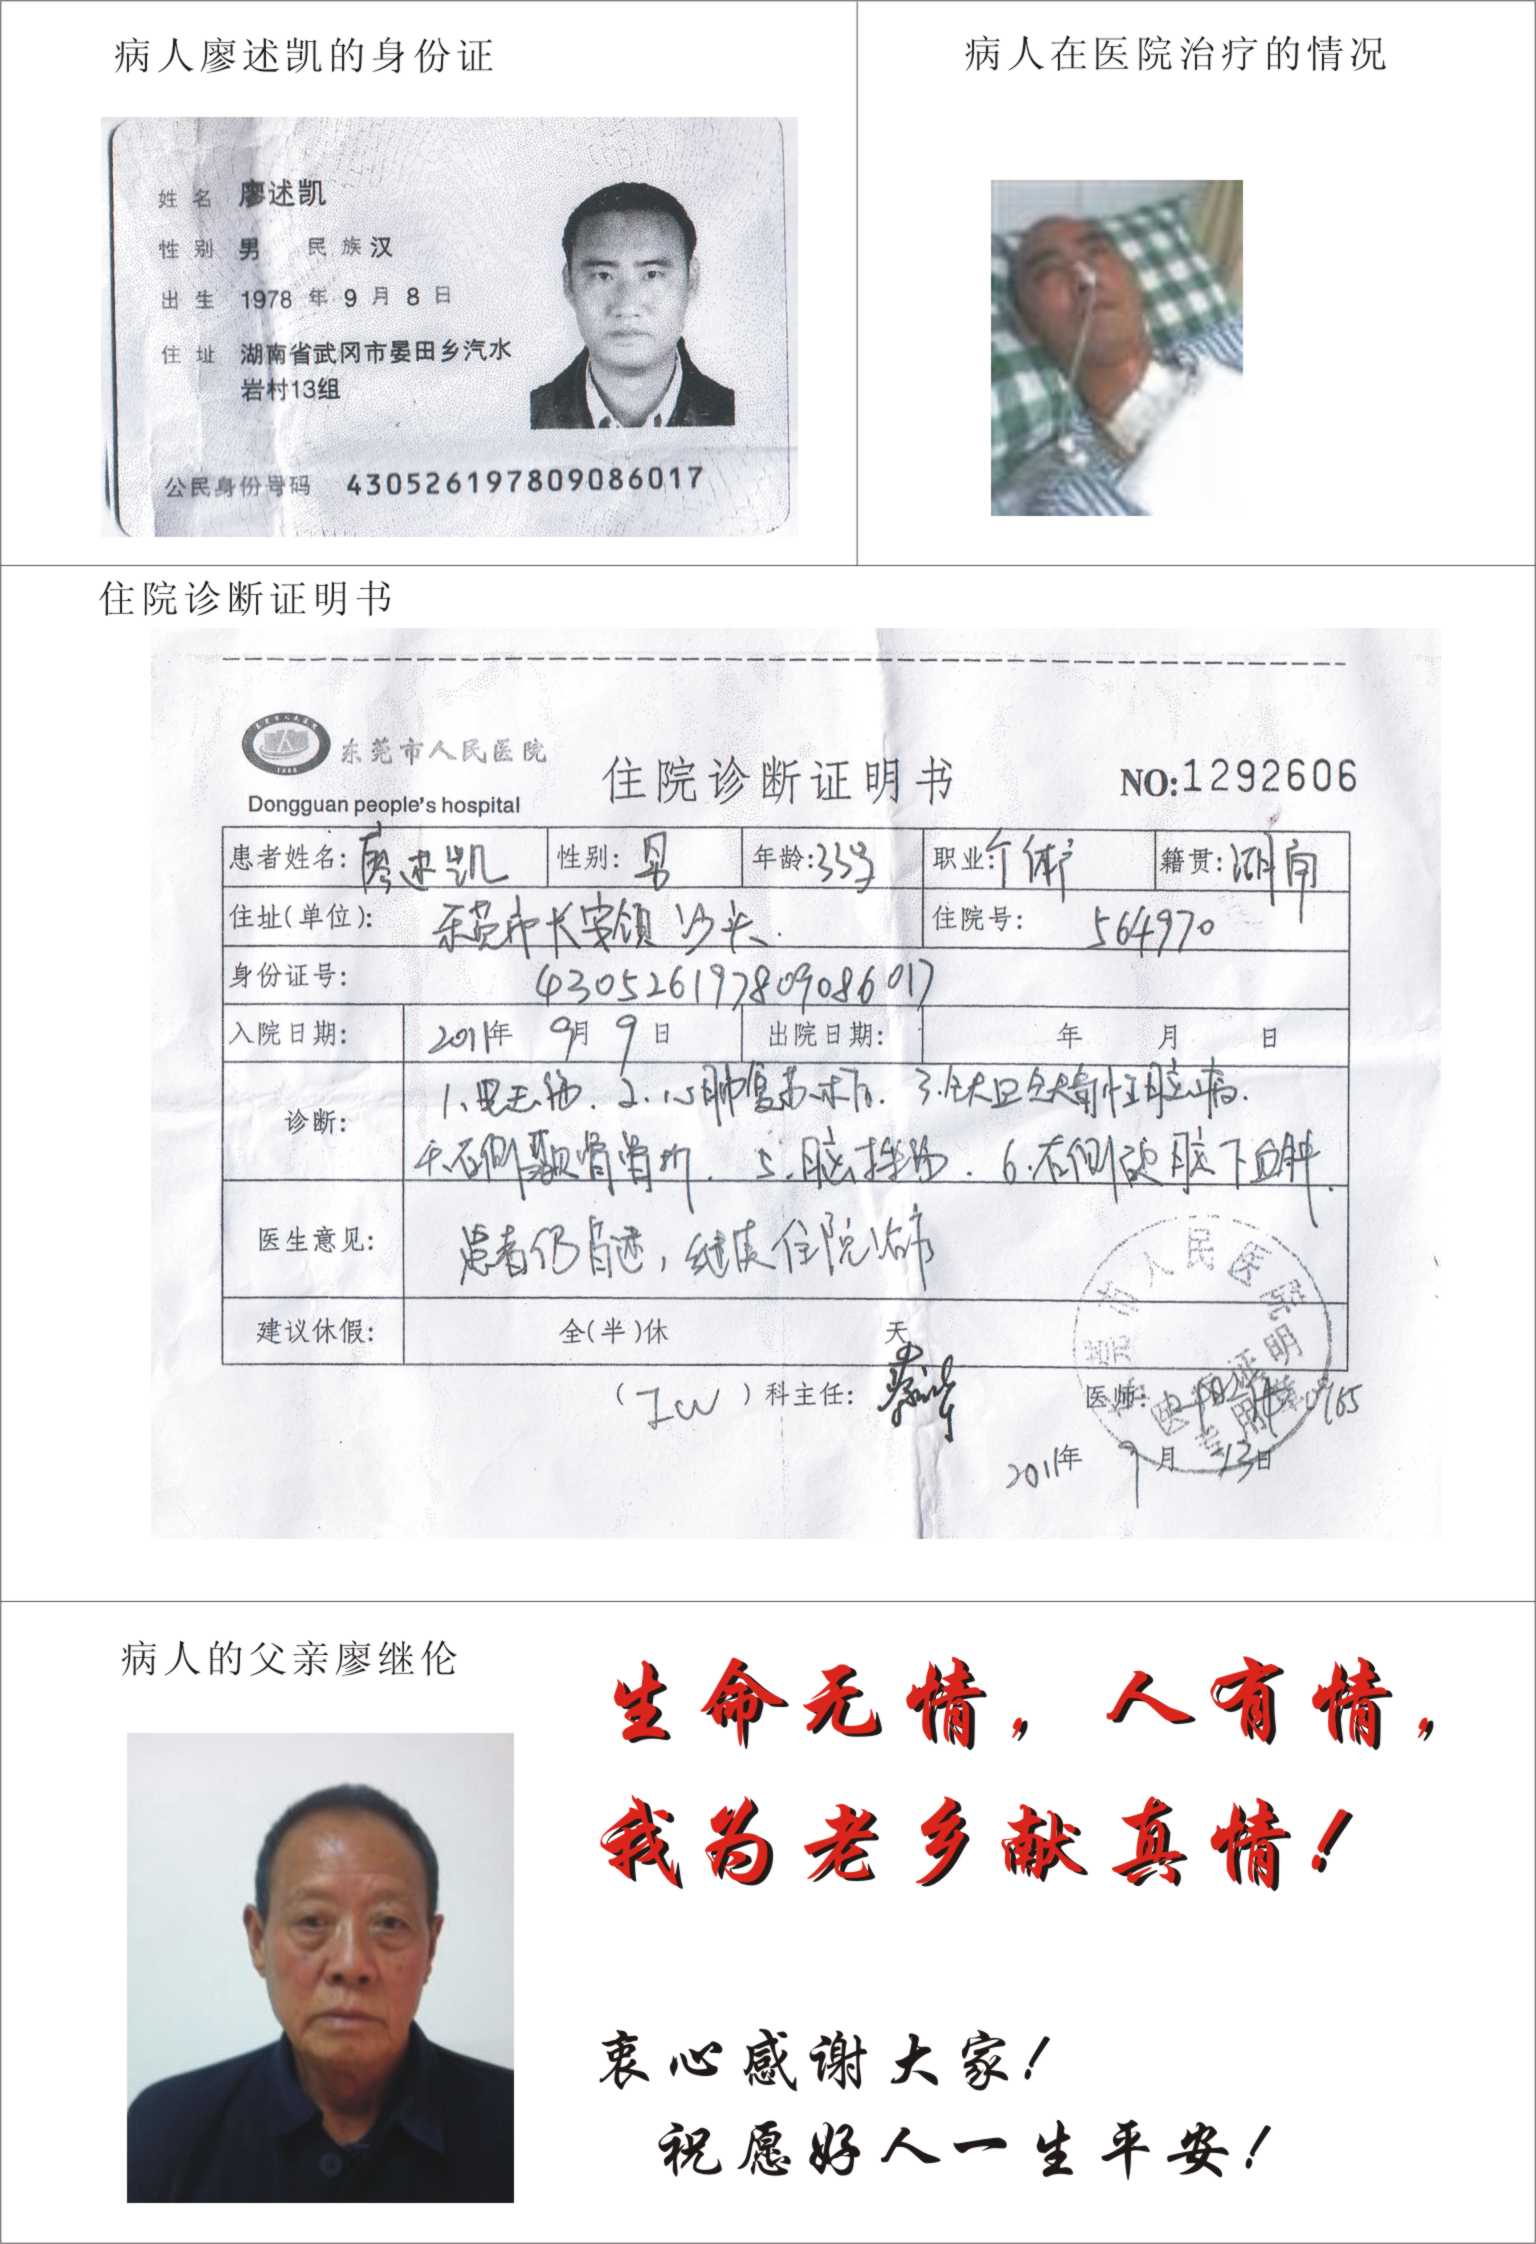 病人廖述凯的身份证
姓名 廖述凯
性别 男 民族 汉
出生 1978 年 9 月 8 日
住址 湖南省武冈市晏田乡汽水
岩村13组
公民身份号码 430526197809086017
病人在医院治疗的情况
住院诊断证明书
东莞市人民医院
Dongguan people's hospital
住院诊断证明书
NO:1292606
患者姓名: 廖述凯 性别: 男 年龄: 33岁 职业: 个体户 籍贯: 湖南
住址(单位): 东莞市长安镇沙头. 住院号: 564970
身份证号: 430526197809086017
入院日期: 2011年 9月 9日 出院日期: 年 月 日
诊断: 1.电击伤. 2.心肺复苏术后. 3.缺血缺氧性脑病.
4.右侧颞骨骨折. 5.脑挫伤. 6.右侧硬膜下血肿.
医生意见: 患者仍昏迷,继续住院治疗
建议休假: 全(半)休 天
(ICU)科主任: 医师: 0165
2011年 9月 13日
东莞市人民医院
医疗证明
专用章
病人的父亲廖继伦
生命无情,人有情,
我为老乡献真情!
衷心感谢大家!
祝愿好人一生平安!